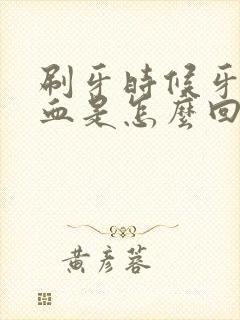 刷牙時候牙
血是怎麼回
黃彥蓉